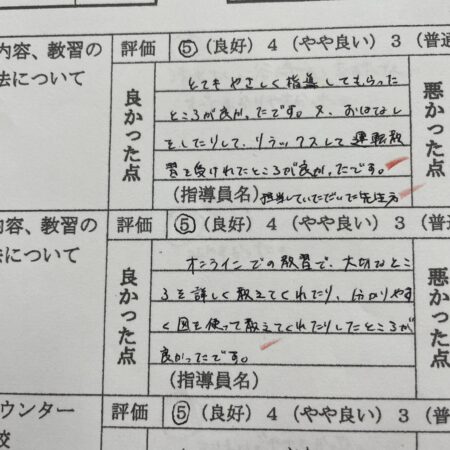 内容、教習の
法について
評価 ⑤(良好) 4 (やや良い) 3 (普通
良かった点
とてもやさしく指導してもらった
ところが良かったです。又、おはなし
をしたりして、リラックスして運転教
習を受けれたところが良かったです。
(指導員名) 担当していただいた先生方
悪かった点
内容、教習の
法について
評価 ⑤(良好) 4 (やや良い) 3 (普通
良かった点
オンラインでの教習で、大切なとこ
ろを詳しく教えてくれたり、分かりやす
く図を使って教えてくれたりしたところが
良かったです。
(指導員名)
悪かった点
ウンター
校
評価 ⑤(良好) 4 (やや良い) 3 (普